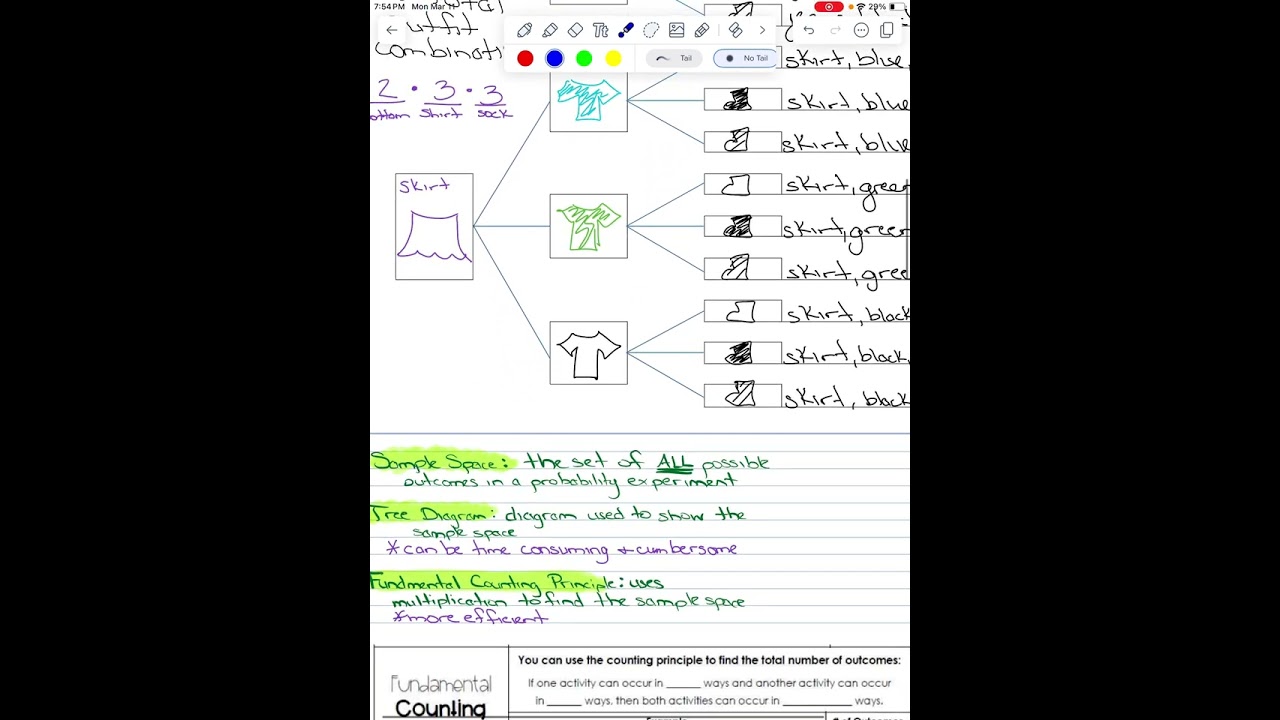 7:54 PM Mon Mar 11
29%
outfit
combinati
Tt
Tail
No Tail
2 · 3 · 3
ottom shirt sock
skirt, blue,
skirt, blue
skirt, blue
skirt
skirt, green
skirt, green
skirt, gree
skirt, black
skirt, black,
skirt, black
Sample Space: the set of ALL possible
outcomes in a probability experiment
Tree Diagram: diagram used to show the
sample space
*can be time consuming + cumbersome
Fundmental Counting Principle: uses
multiplication to find the sample space
*more efficient
Fundamental
Counting
You can use the counting principle to find the total number of outcomes:
If one activity can occur in ______ ways and another activity can occur
in ______ ways, then both activities can occur in ____________ ways.